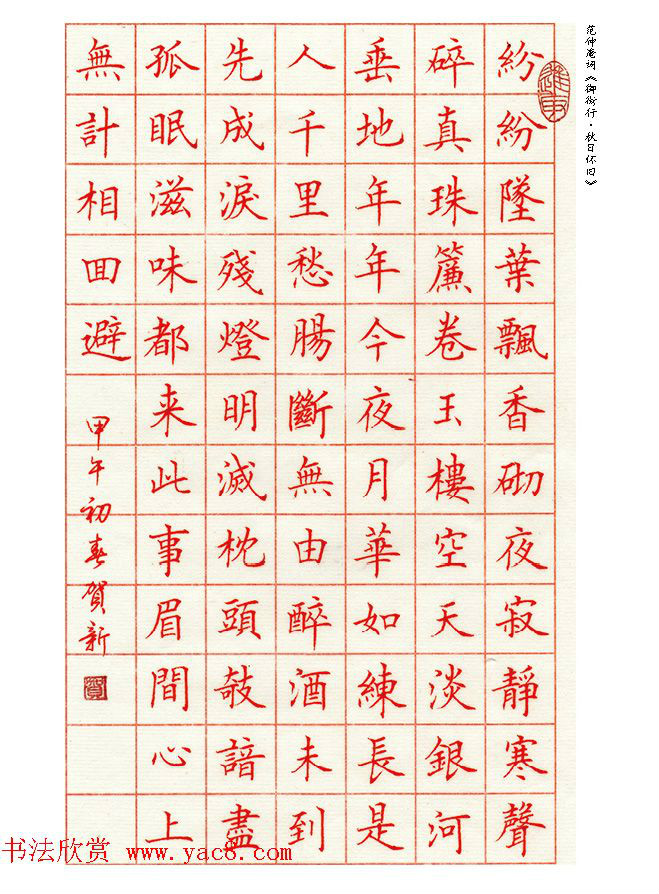 范仲淹词《御街行·秋日怀旧》
紛紛墜葉飄香砌夜寂靜寒聲
碎真珠簾卷玉樓空天淡銀河
垂地年年今夜月華如練長是
人千里愁腸斷無由醉酒未到
先成淚殘燈明滅枕頭攲諳盡
孤眠滋味都来此事眉間心上
無計相回避
甲午初春贺新
书法欣赏 www.yac8.com